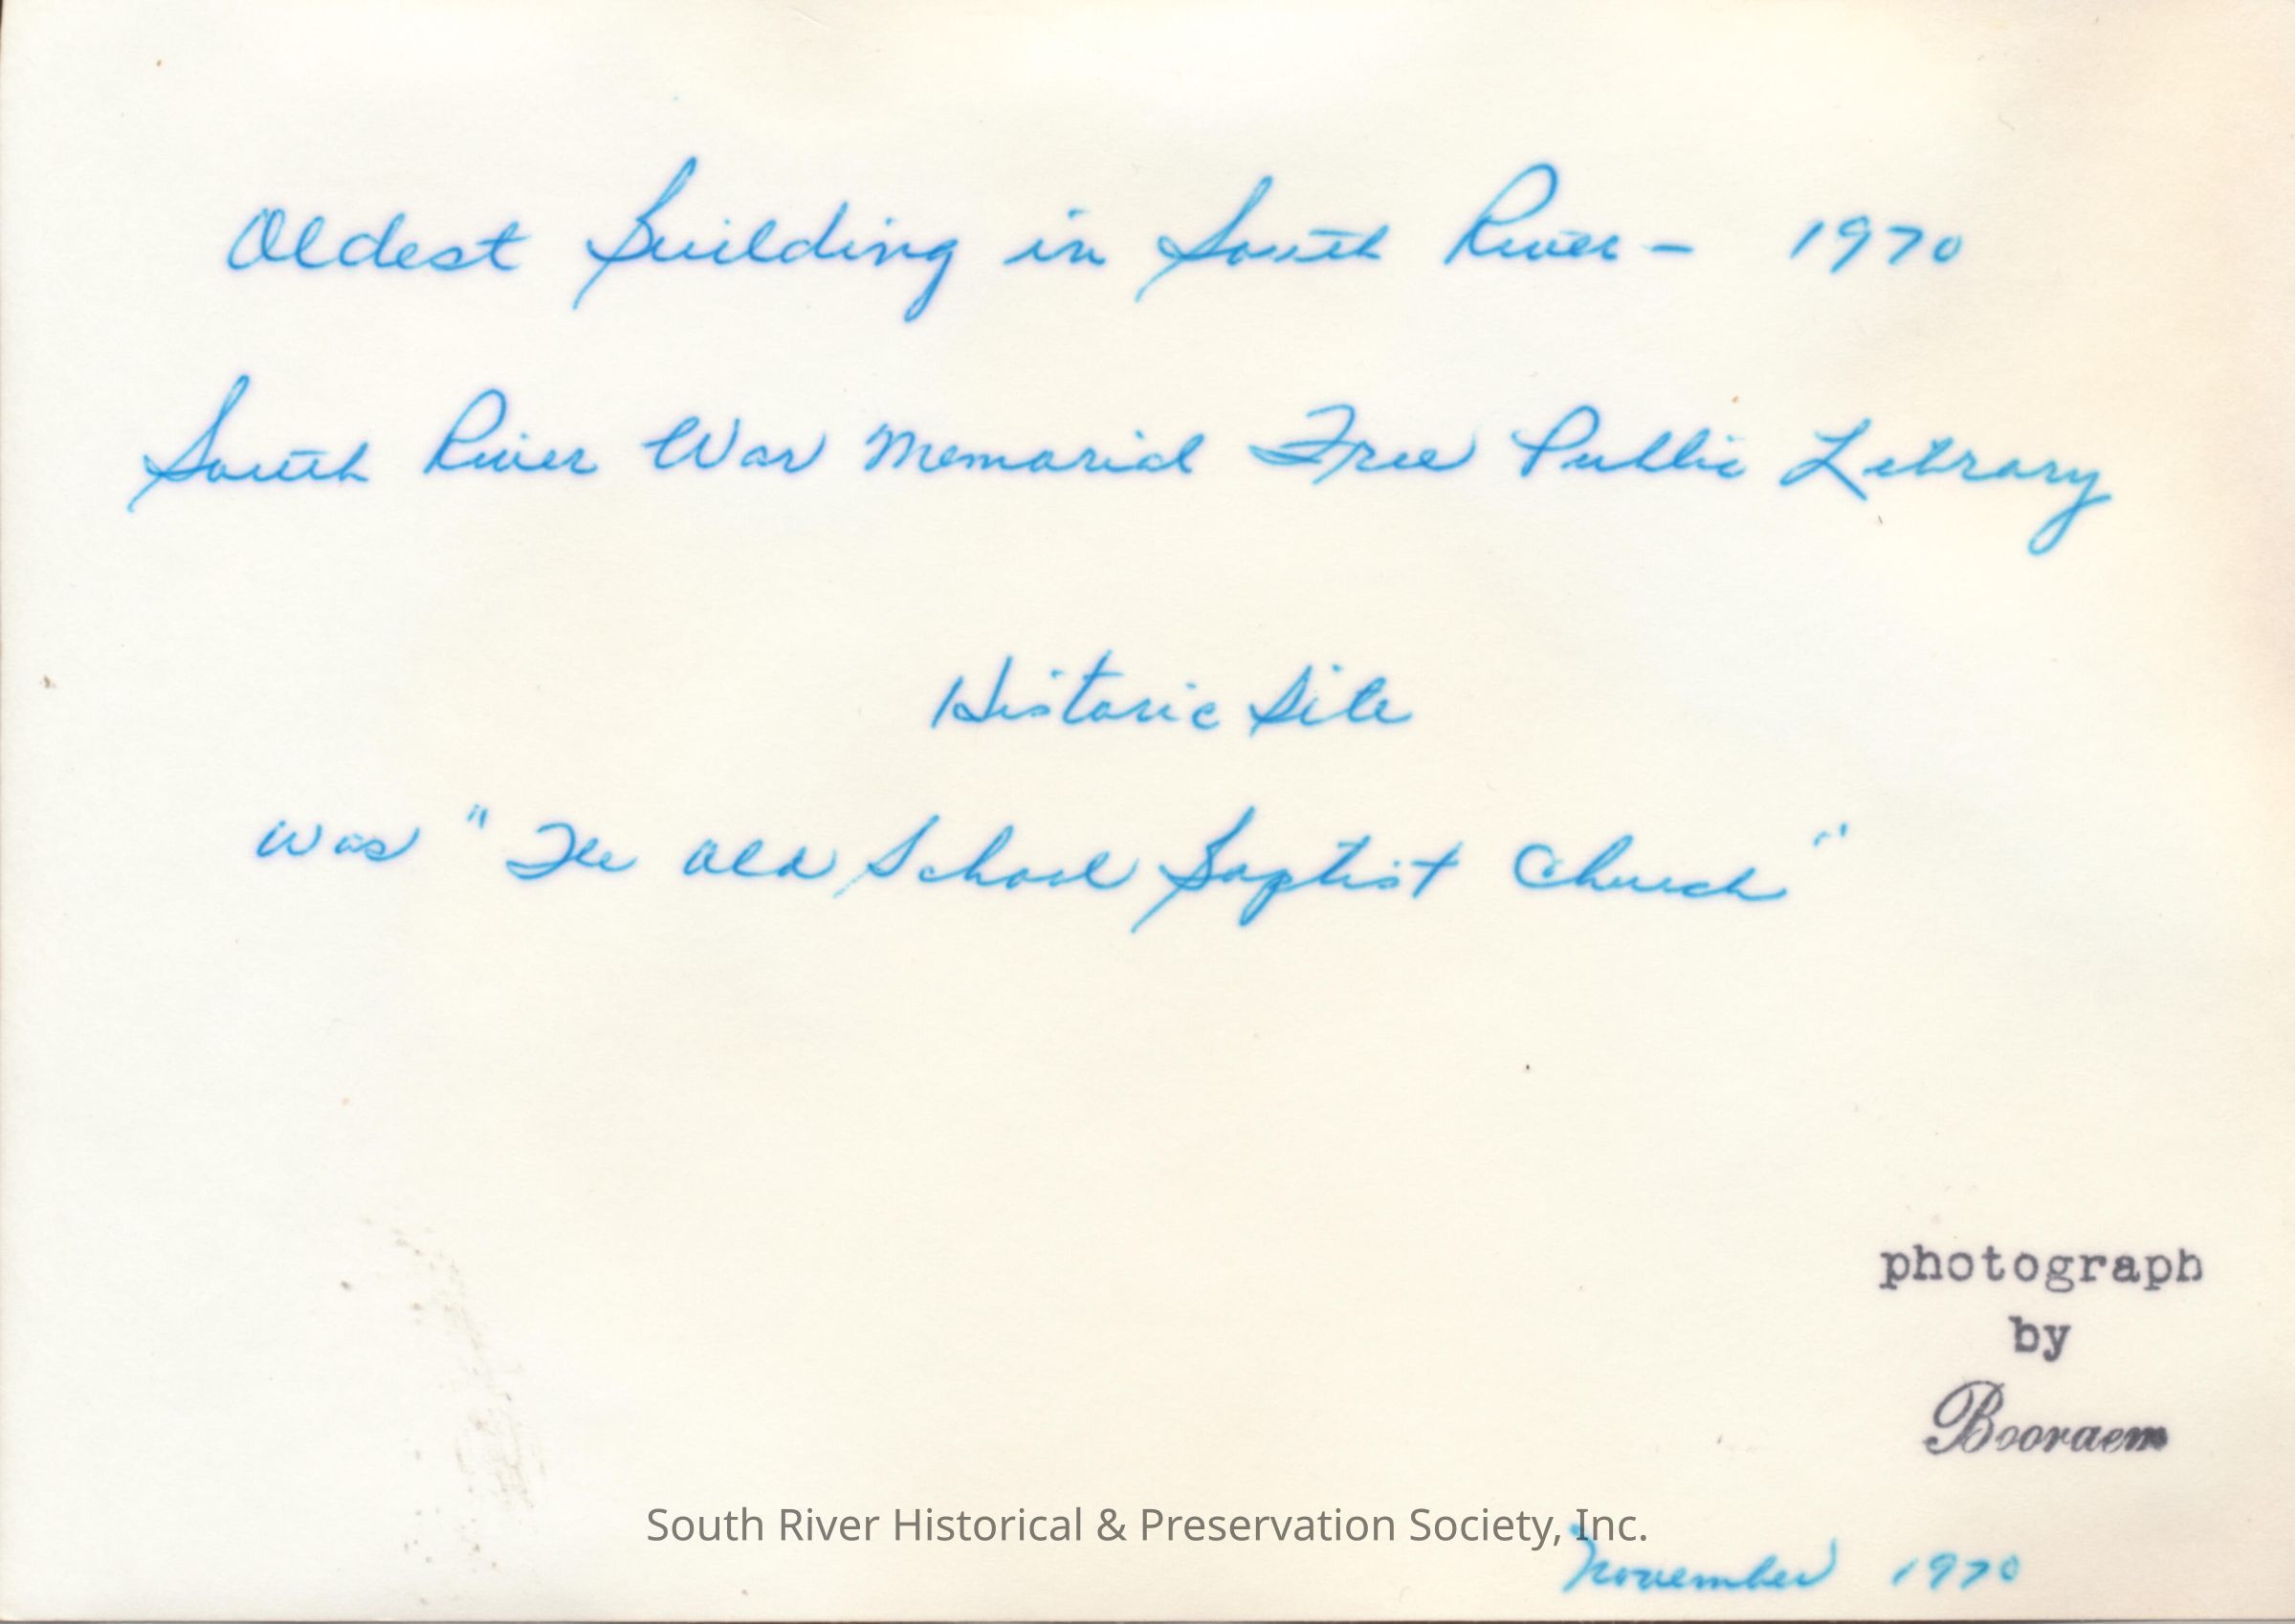 Oldest Building in South River - 1970
South River War Memorial Free Public Library
Historic Site
was "The Old School Baptist Church"
photograph
by
Booraem
South River Historical & Preservation Society, Inc.
November 1970